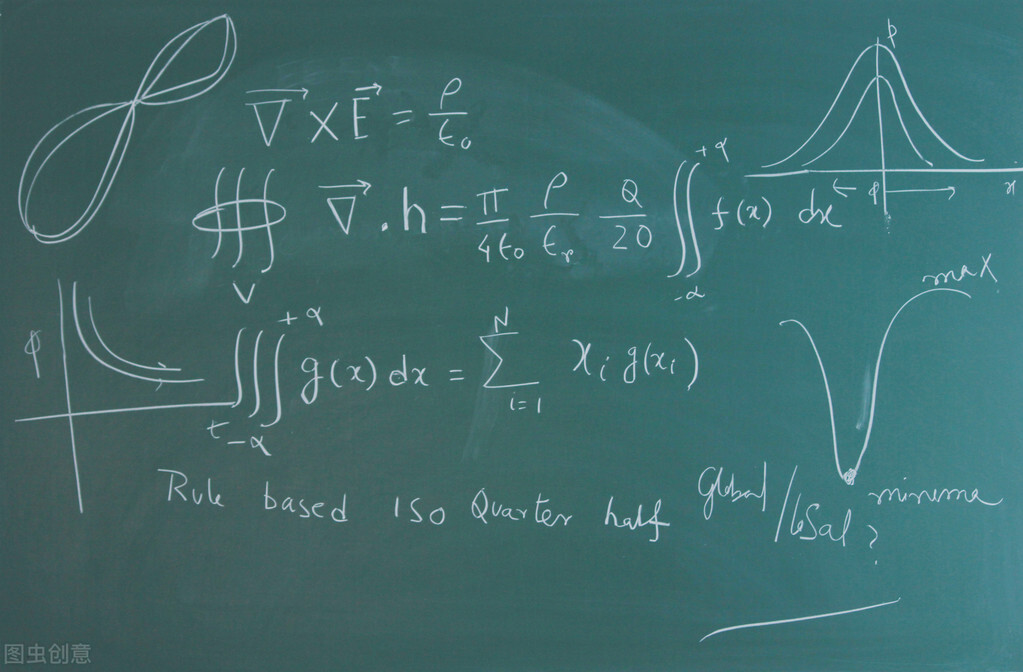 ∇⃗ × E⃗ = ρ/ϵ₀
p
∭_V ∇⃗ . h = π/4ϵ₀ ρ/ϵᵣ Q/20 ∬_{-α}^{+α} f(x) dx
← φ → x
max
φ
t
∭_{-α}^{+α} g(x) dx = ∑_{i=1}^{N} x_i g(x_i)
Rule based ISO Quarter half
Global / minima ?
图虫创意